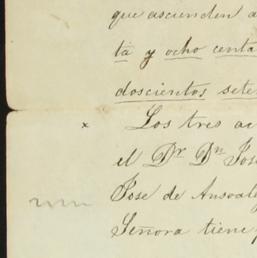 que ascienden a
ta y ocho centa
doscientos sete
x Los tres ac
el Dr Dn José
José de Ansoale
Señora tiene p